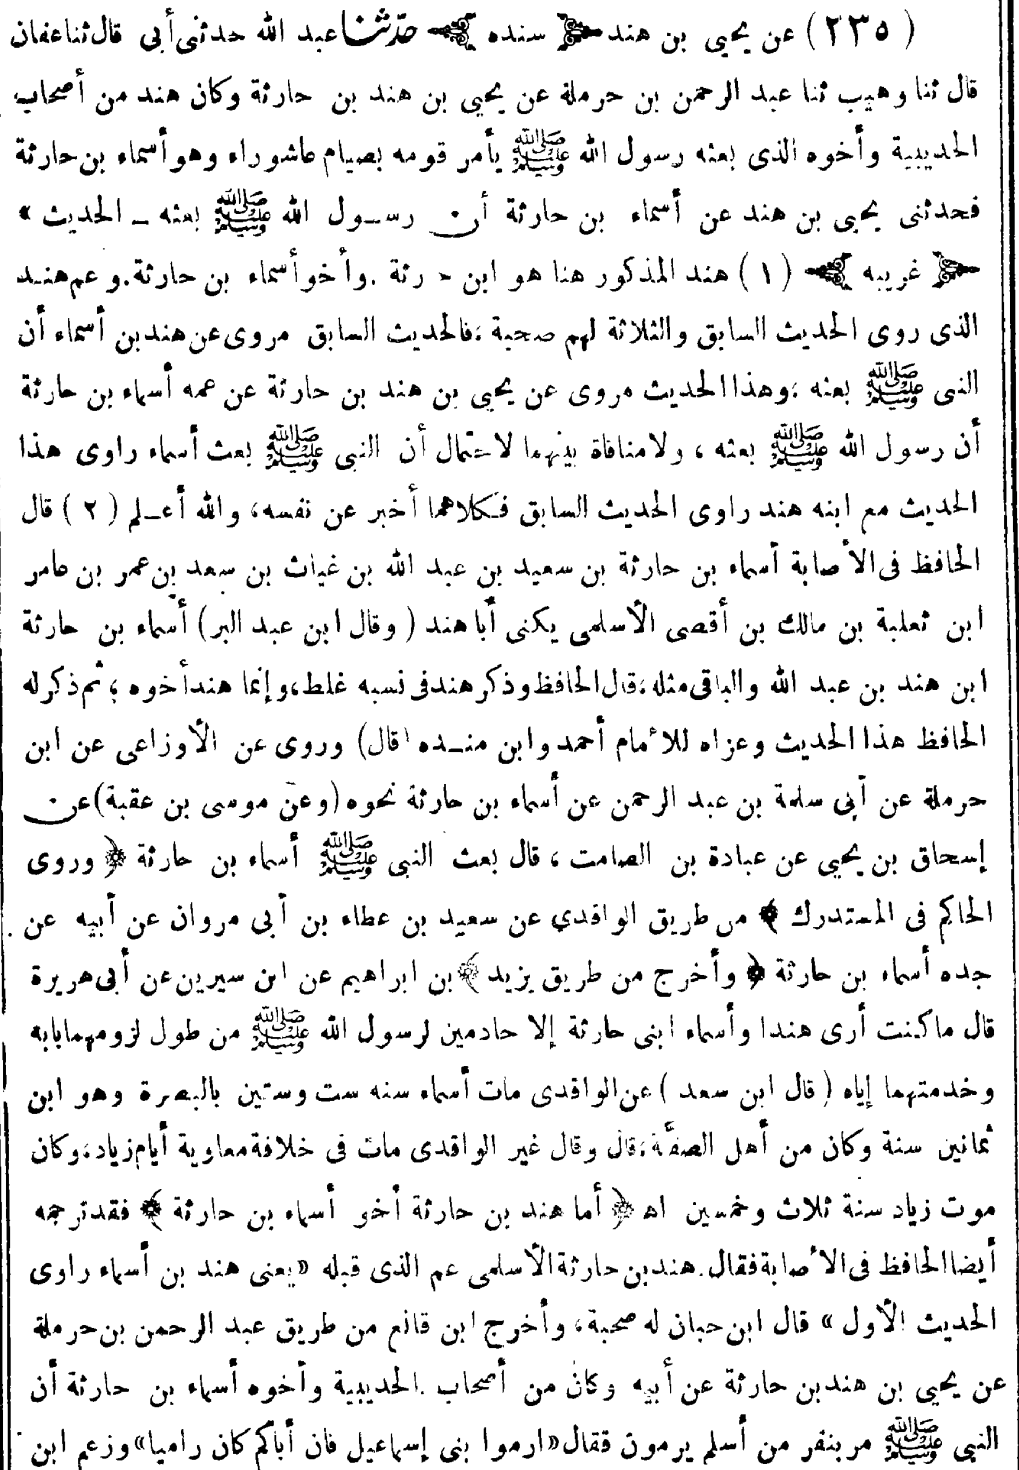 (٢٣٥) عن يحيى بن هند ﴿ سنده ﴾ حدّثنا عبد الله حدثنى أبى قال ثنا عفان
قال ثنا وهيب ثنا عبد الرحمن بن حرملة عن يحيى بن هند بن حارثة وكان هند من أصحاب
الحديبية وأخوه الذى بعثه رسول الله ﷺ يأمر قومه بصيام عاشوراء وهو أسماء بن حارثة
فحدثنى يحيى بن هند عن أسماء بن حارثة أن رسول الله ﷺ بعثه ـ الحديث »
﴿ غريبه ﴾ (١) هند المذكور هنا هو ابن حارثة . وأخو أسماء بن حارثة . وعم هند
الذى روى الحديث السابق والثلاثة لهم صحبة ، فالحديث السابق مروى عن هند بن أسماء أن
النبى ﷺ بعثه ، وهذا الحديث مروى عن يحيى بن هند بن حارثة عن عمه أسماء بن حارثة
أن رسول الله ﷺ بعثه ، ولا منافاة بينهما لاحتمال أن النبى ﷺ بعث أسماء راوى هذا
الحديث مع ابنه هند راوى الحديث السابق فكلاهما أخبر عن نفسه، والله أعلم (٢) قال
الحافظ فى الأصابة أسماء بن حارثة بن سعيد بن عبد الله بن غياث بن سعد بن عمر بن عامر
ابن ثعلبة بن مالك بن أقصى الأسلمى يكنى أبا هند (وقال ابن عبد البر) أسماء بن حارثة
ابن هند بن عبد الله والباقى مثله ، قال الحافظ وذكر هند فى نسبه غلط ، وإنما هند أخوه ؛ ثم ذكر له
الحافظ هذا الحديث وعزاه للأمام أحمد وابن منده (قال) وروى عن الأوزاعى عن ابن
حرملة عن أبى سلمة بن عبد الرحمن عن أسماء بن حارثة نحوه (وعن موسى بن عقبة) عن
إسحاق بن يحيى عن عبادة بن الصامت ، قال بعث النبى ﷺ أسماء بن حارثة ﴿ وروى
الحاكم فى المستدرك ﴾ من طريق الواقدى عن سعيد بن عطاء بن أبى مروان عن أبيه عن
جده أسماء بن حارثة ﴿ وأخرج من طريق يزيد ﴾ بن ابراهيم عن ابن سيرين عن أبى هريرة
قال ما كنت أرى هندا وأسماء ابنى حارثة إلا خادمين لرسول الله ﷺ من طول لزومهما بابه
وخدمتهما إياه (قال ابن سعد) عن الواقدى مات أسماء سنه ست وستين بالبصرة وهو ابن
ثمانين سنة وكان من أهل الصفّة ، قال وقال غير الواقدى مات فى خلافة معاوية أيام زياد ، وكان
موت زياد سنة ثلاث وخمسين اهـ ﴿ أما هند بن حارثة أخو أسماء بن حارثة ﴾ فقد ترجمه
أيضا الحافظ فى الأصابة فقال . هند بن حارثة الأسلمى عم الذى قبله «يعنى هند بن أسماء راوى
الحديث الأول » قال ابن حبان له صحبة ، وأخرج ابن قانع من طريق عبد الرحمن بن حرملة
عن يحيى بن هند بن حارثة عن أبيه وكان من أصحاب الحديبية وأخوه أسماء بن حارثة أن
النبى ﷺ مر بنفر من أسلم يرمون فقال «ارموا بنى إسماعيل فان أباكم كان راميا» وزعم ابن